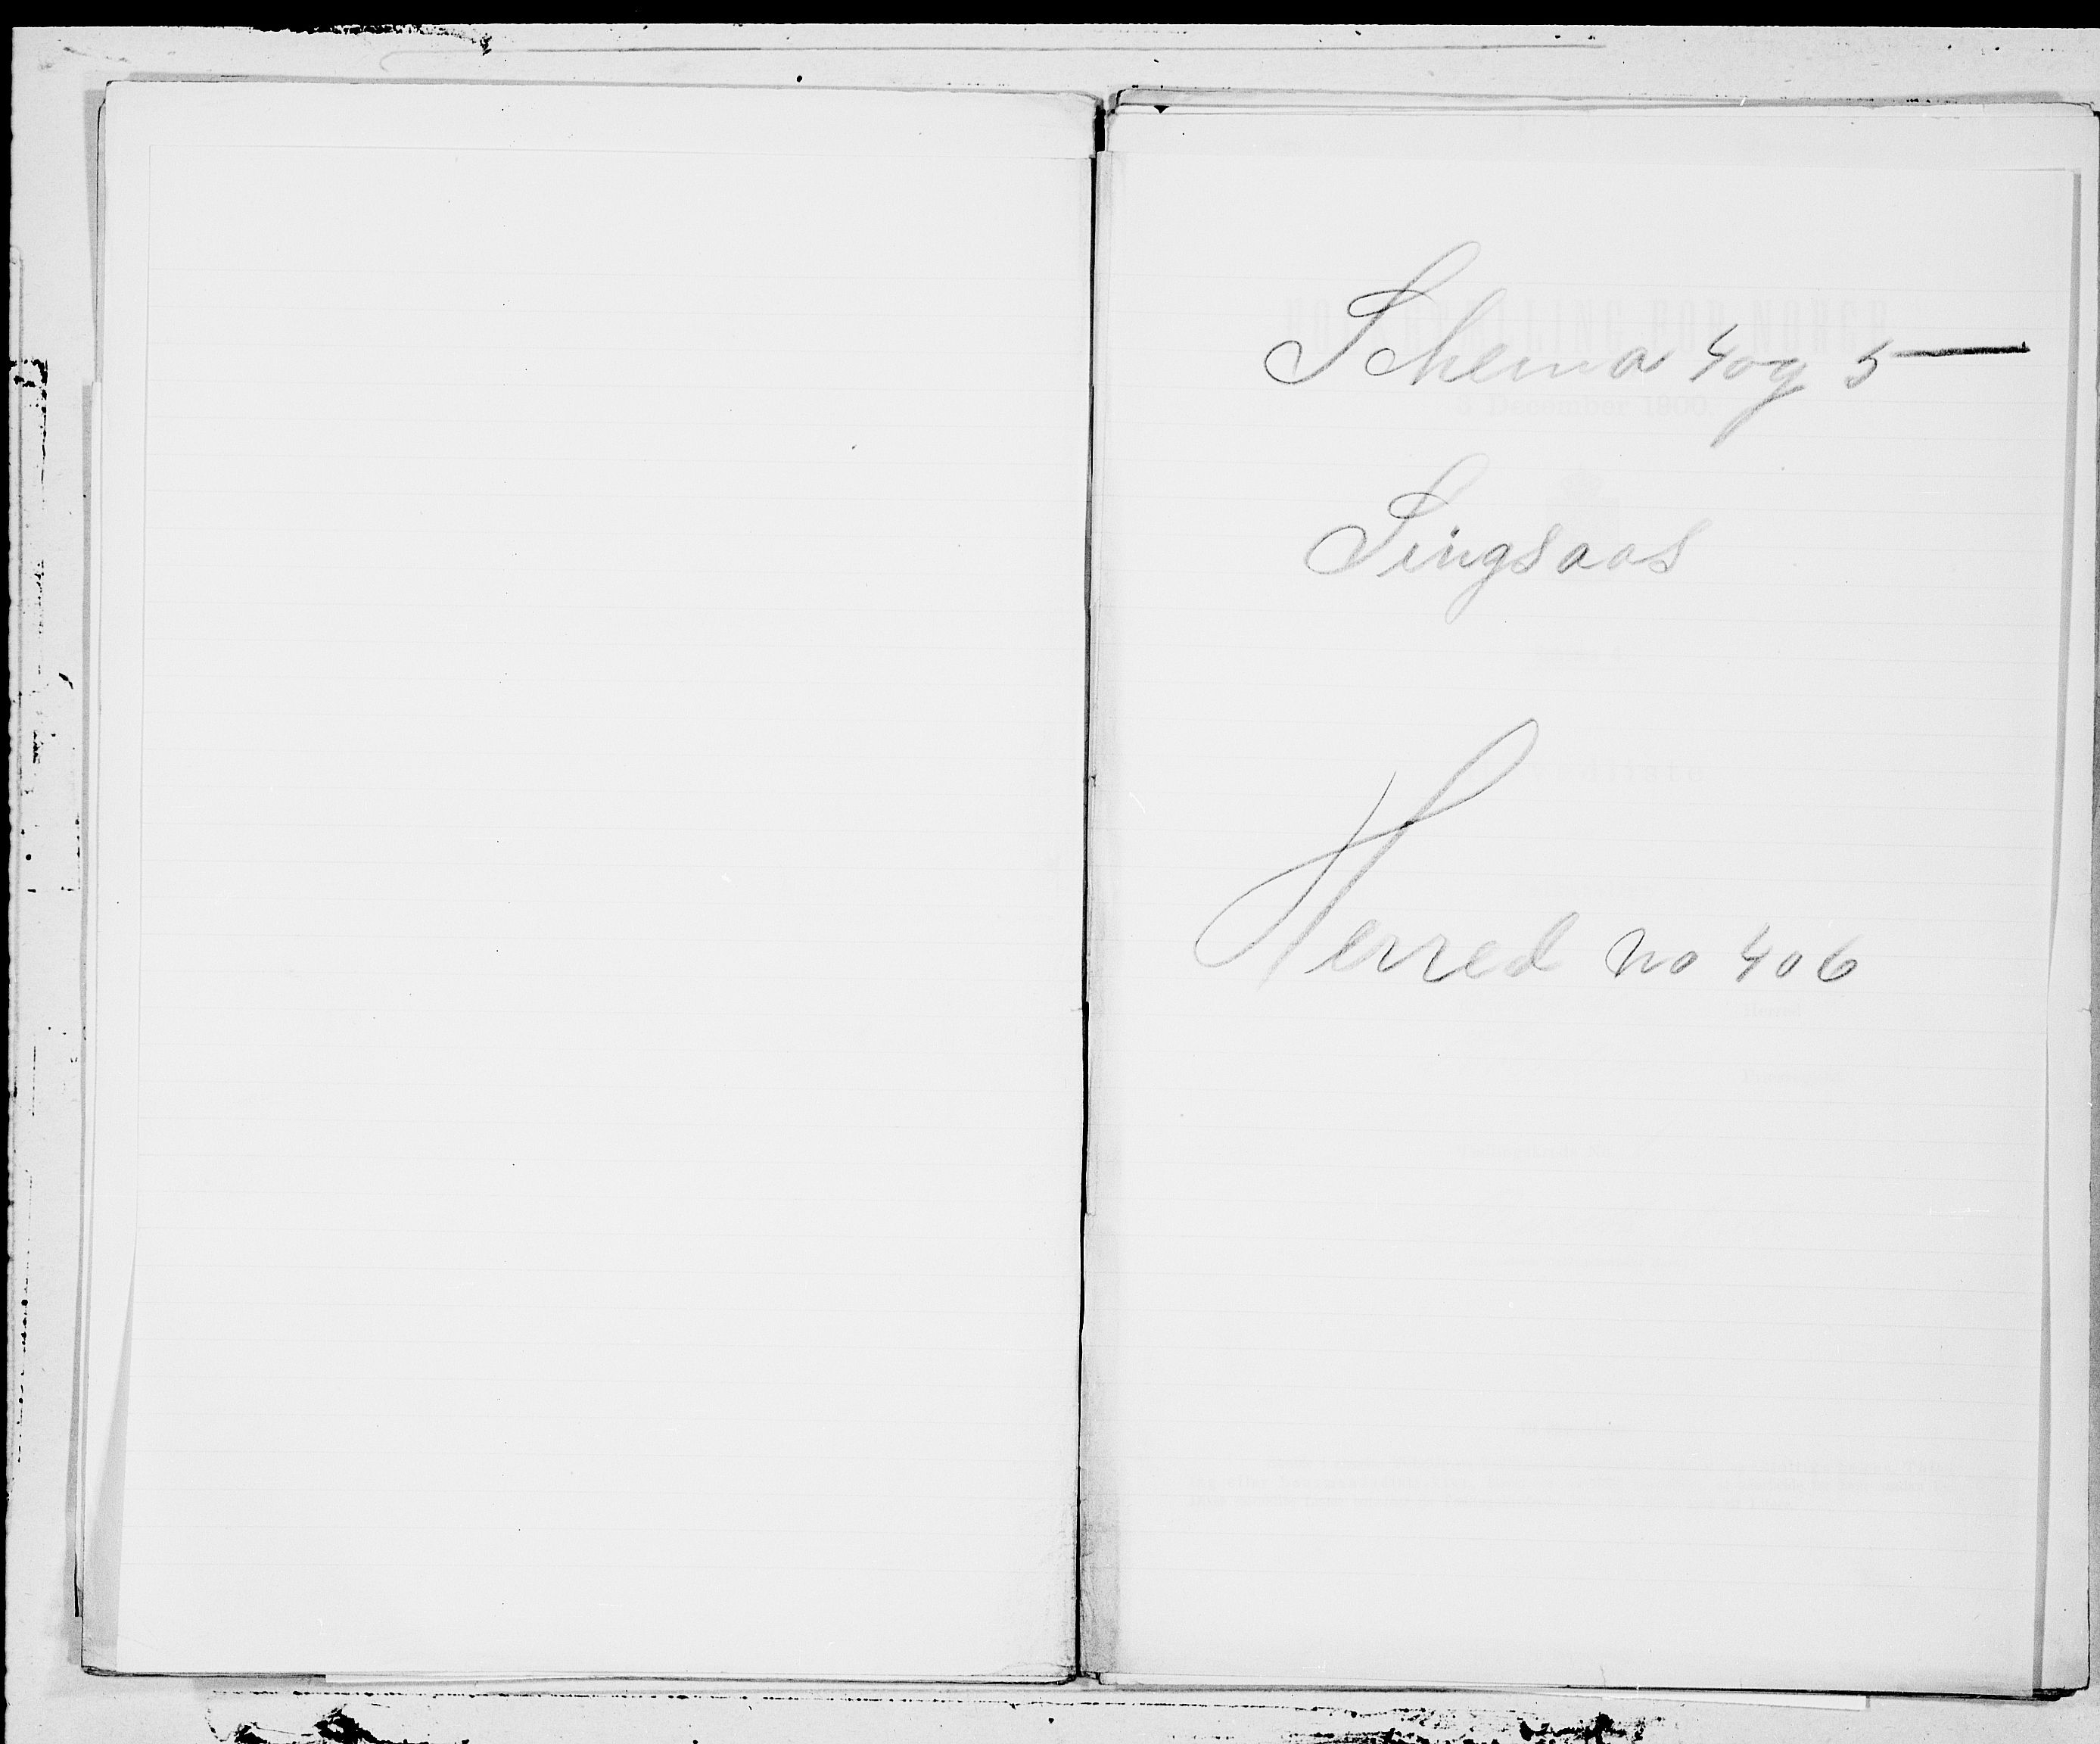 Schema 4 og 5 —
FOLKETÆLLING FOR NORGE
3 December 1900.
Singsaas
Herred no 406
Herred